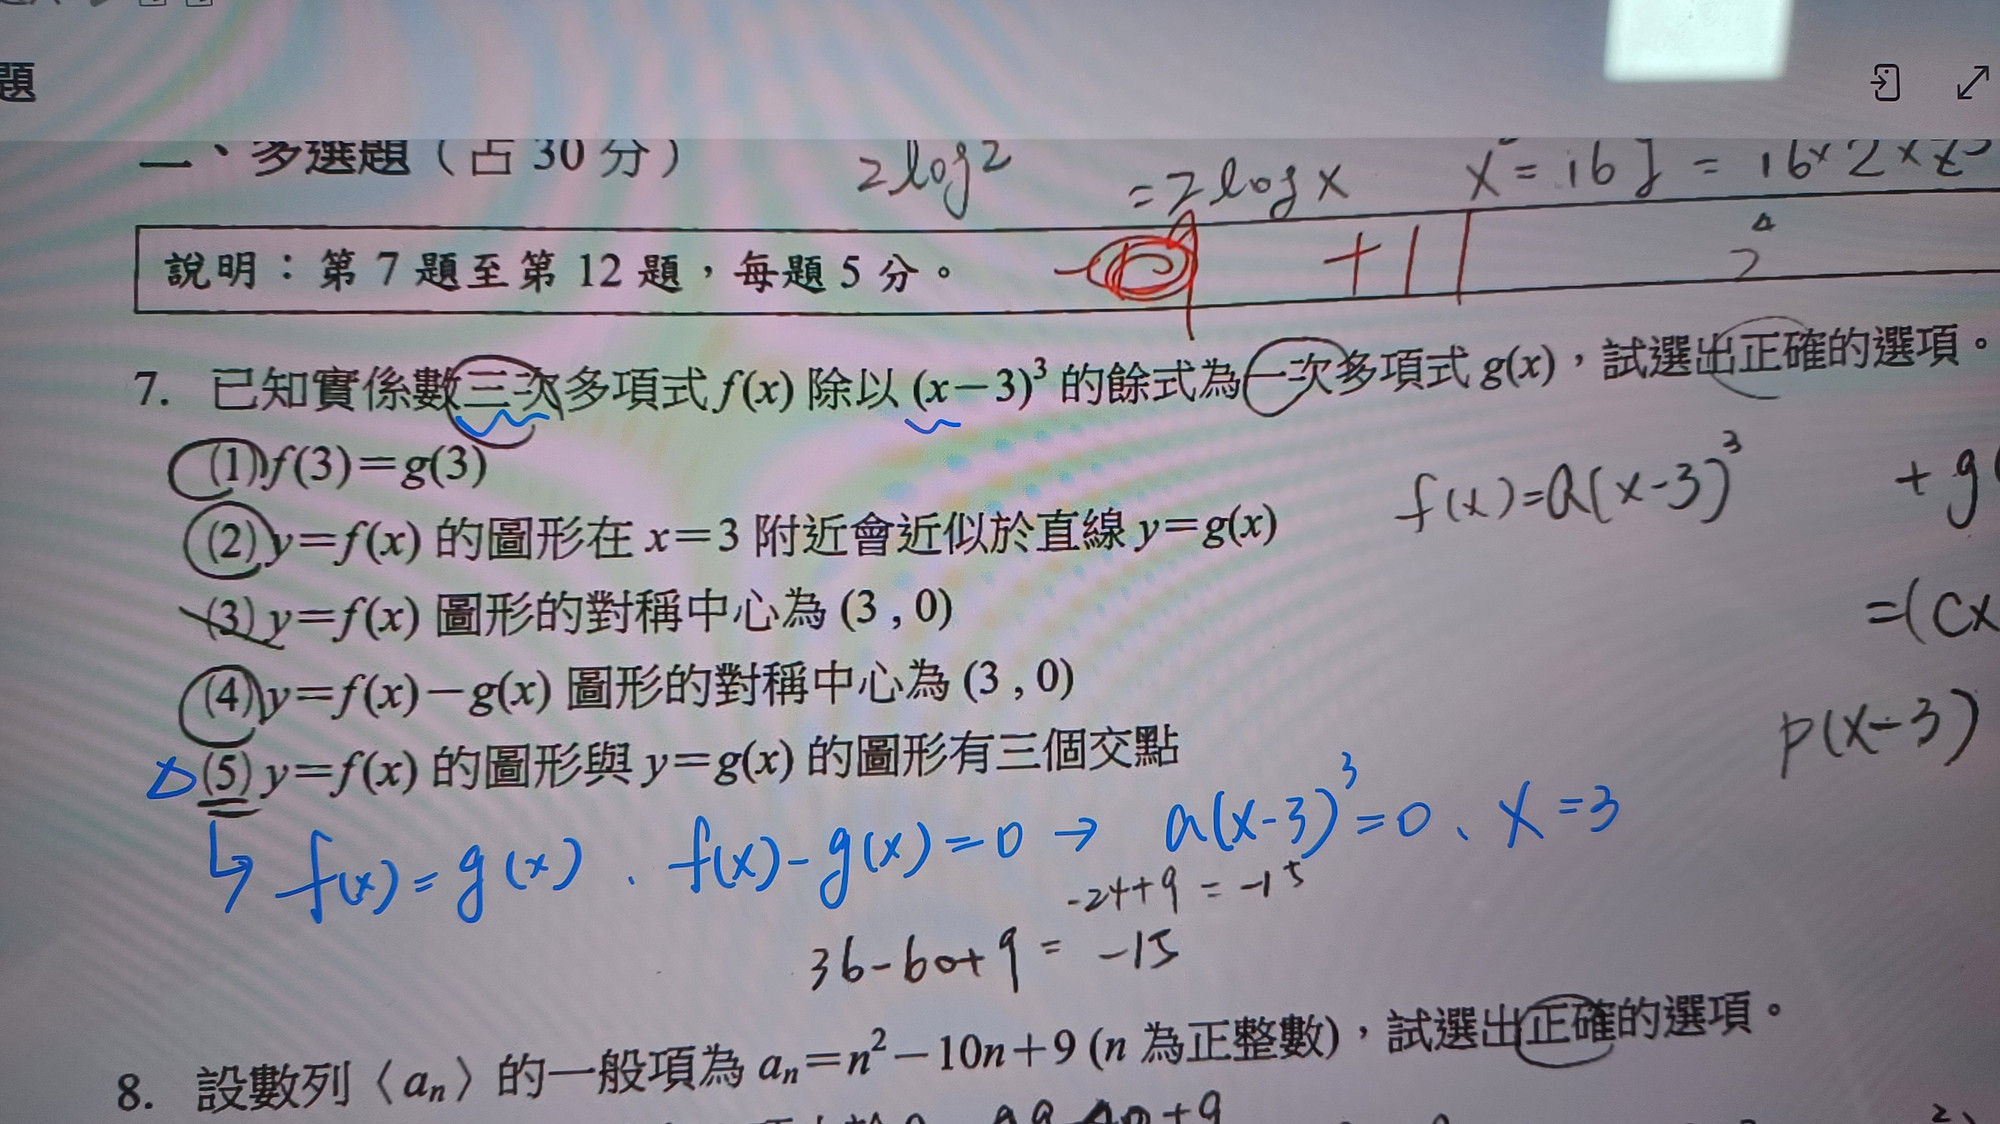 題
二、多選題（占 30 分）
2log2 =2logx x²=16
說明：第 7 題至第 12 題，每題 5 分。
7. 已知實係數三次多項式 f(x) 除以 (x－3)³ 的餘式為一次多項式 g(x)，試選出正確的選項。
(1) f(3)＝g(3)
f(x)=a(x-3)³ +g
(2) y＝f(x) 的圖形在 x＝3 附近會近似於直線 y＝g(x)
(3) y＝f(x) 圖形的對稱中心為 (3 , 0)
=(cx
(4) y＝f(x)－g(x) 圖形的對稱中心為 (3 , 0)
p(x-3)
(5) y＝f(x) 的圖形與 y＝g(x) 的圖形有三個交點
↳ f(x)=g(x)、f(x)-g(x)=0 → a(x-3)³=0、x=3
-24+9=-15
36-60+9=-15
8. 設數列〈aₙ〉的一般項為 aₙ＝n²－10n＋9 (n 為正整數)，試選出正確的選項。